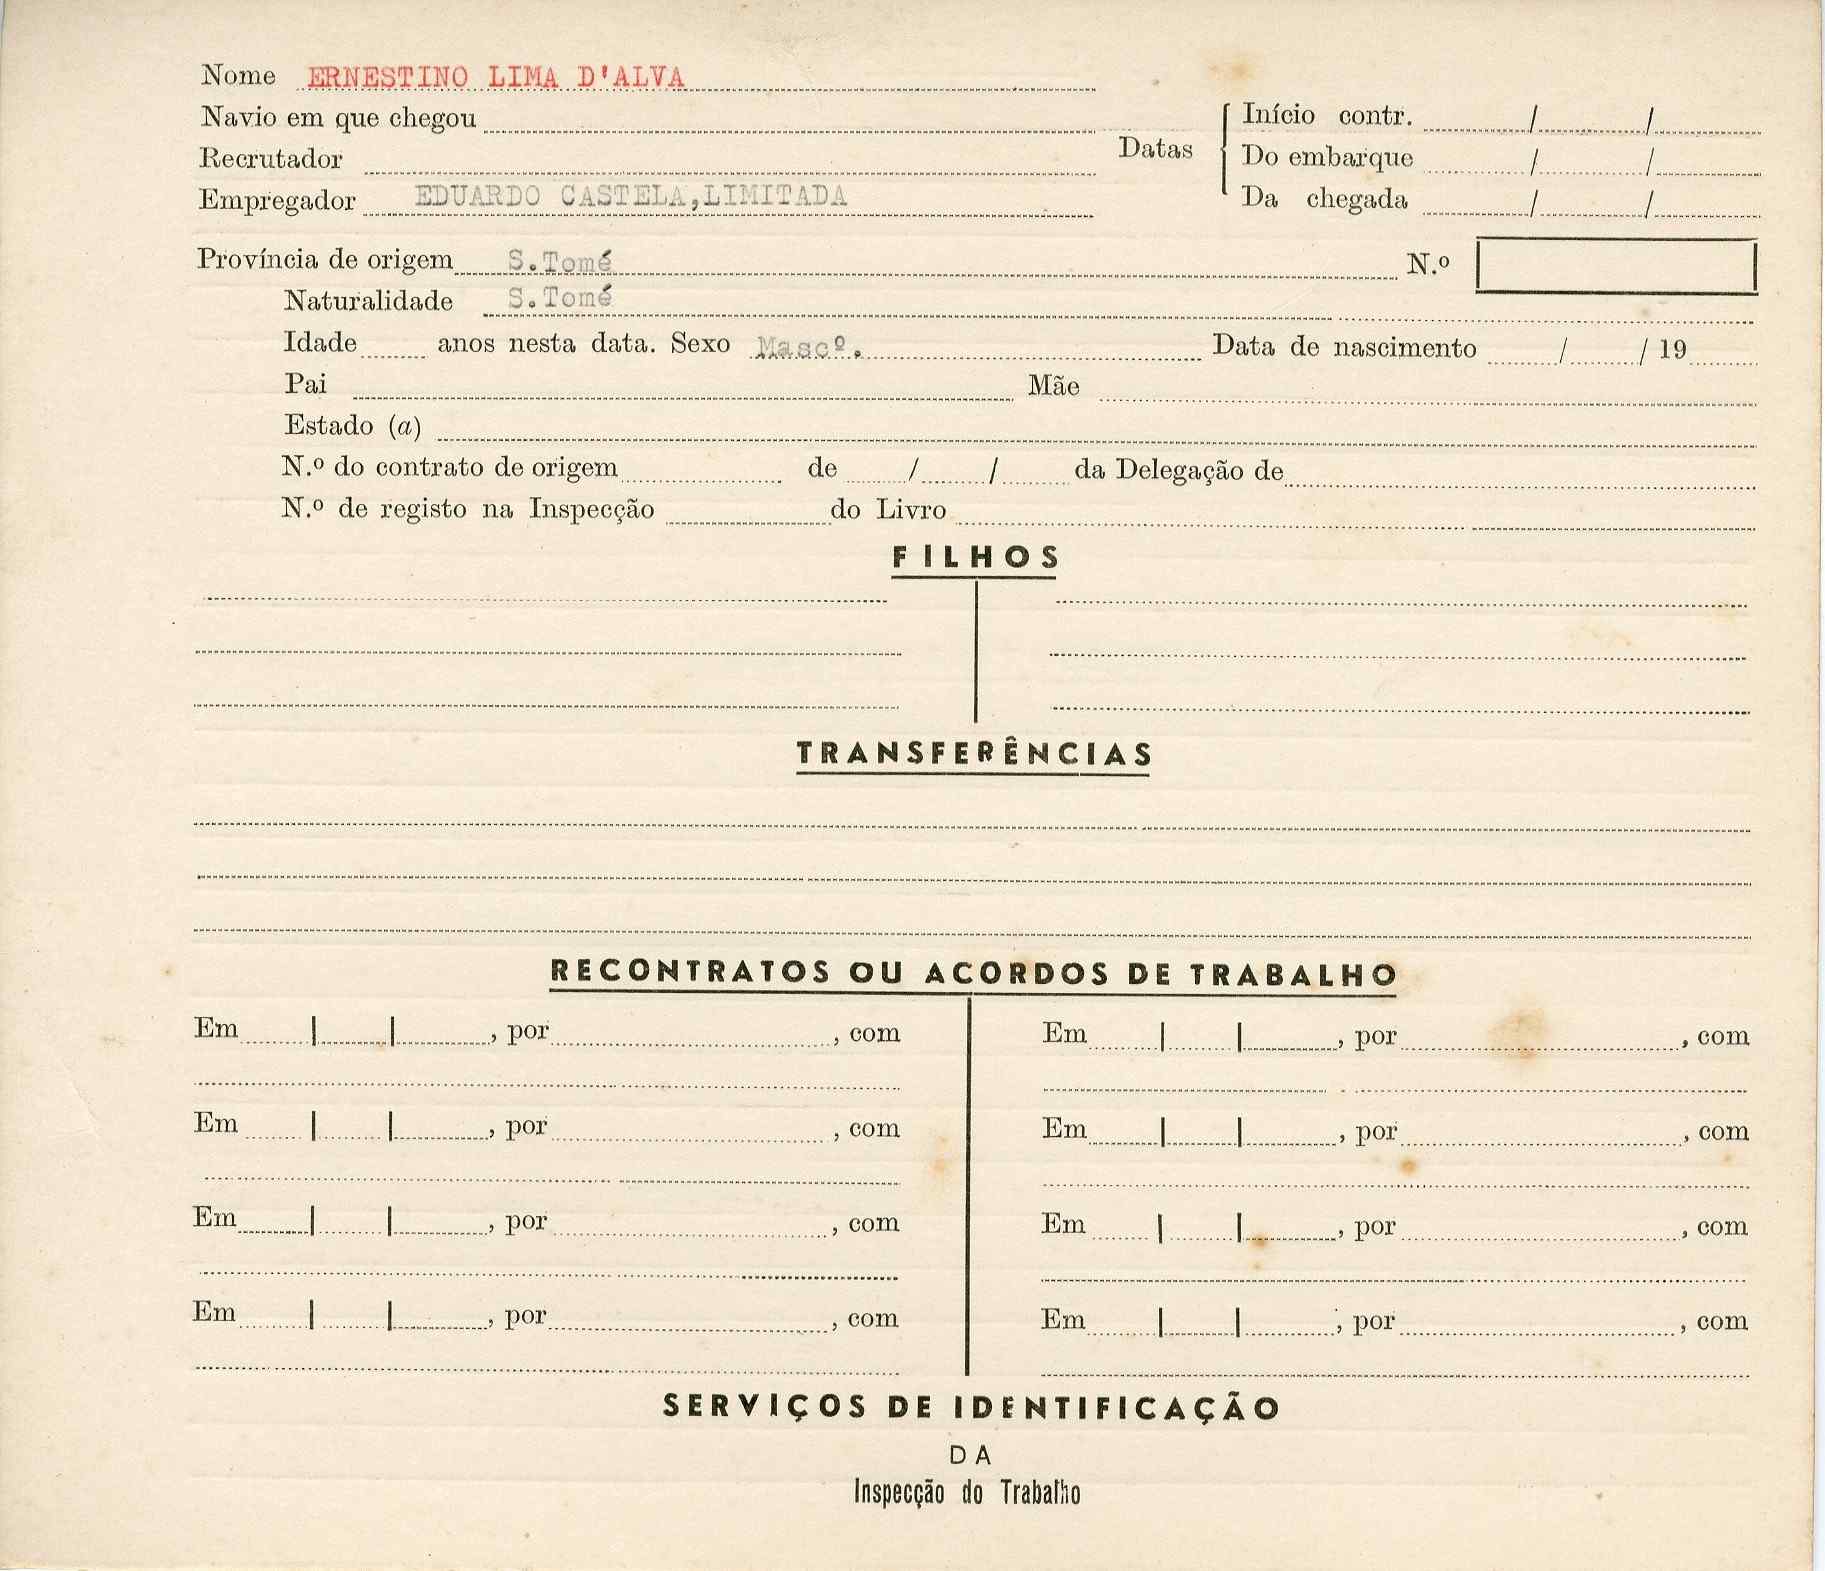 Nome ERNESTINO LIMA D'ALVA
Navio em que chegou
Recrutador
Empregador EDUARDO CASTELA,LIMITADA
Datas
Início contr. / /
Do embarque / /
Da chegada / /
Província de origem S.Tomé N.º
Naturalidade S.Tomé
Idade anos nesta data. Sexo Mascº. Data de nascimento / / 19
Pai Mãe
Estado (a)
N.º do contrato de origem de / / da Delegação de
N.º de registo na Inspecção do Livro
FILHOS
TRANSFERÊNCIAS
RECONTRATOS OU ACORDOS DE TRABALHO
Em | | , por , com
Em | | , por , com
Em | | , por , com
Em | | , por , com
Em | | , por , com
Em | | , por , com
Em | | , por , com
Em | | , por , com
SERVIÇOS DE IDENTIFICAÇÃO
DA
Inspecção do Trabalho